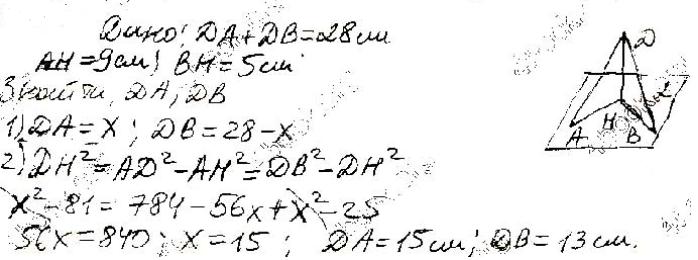 Дано: DA + DB = 28 см
AH = 9 см; BH = 5 см
Знайти, DA, DB
1) DA = x; DB = 28 - x
2) DH² = AD² - AH² = DB² - DH²
x² - 81 = 784 - 56x + x² - 25
56x = 840; x = 15; DA = 15 см; DB = 13 см.
D
H
A
B
α